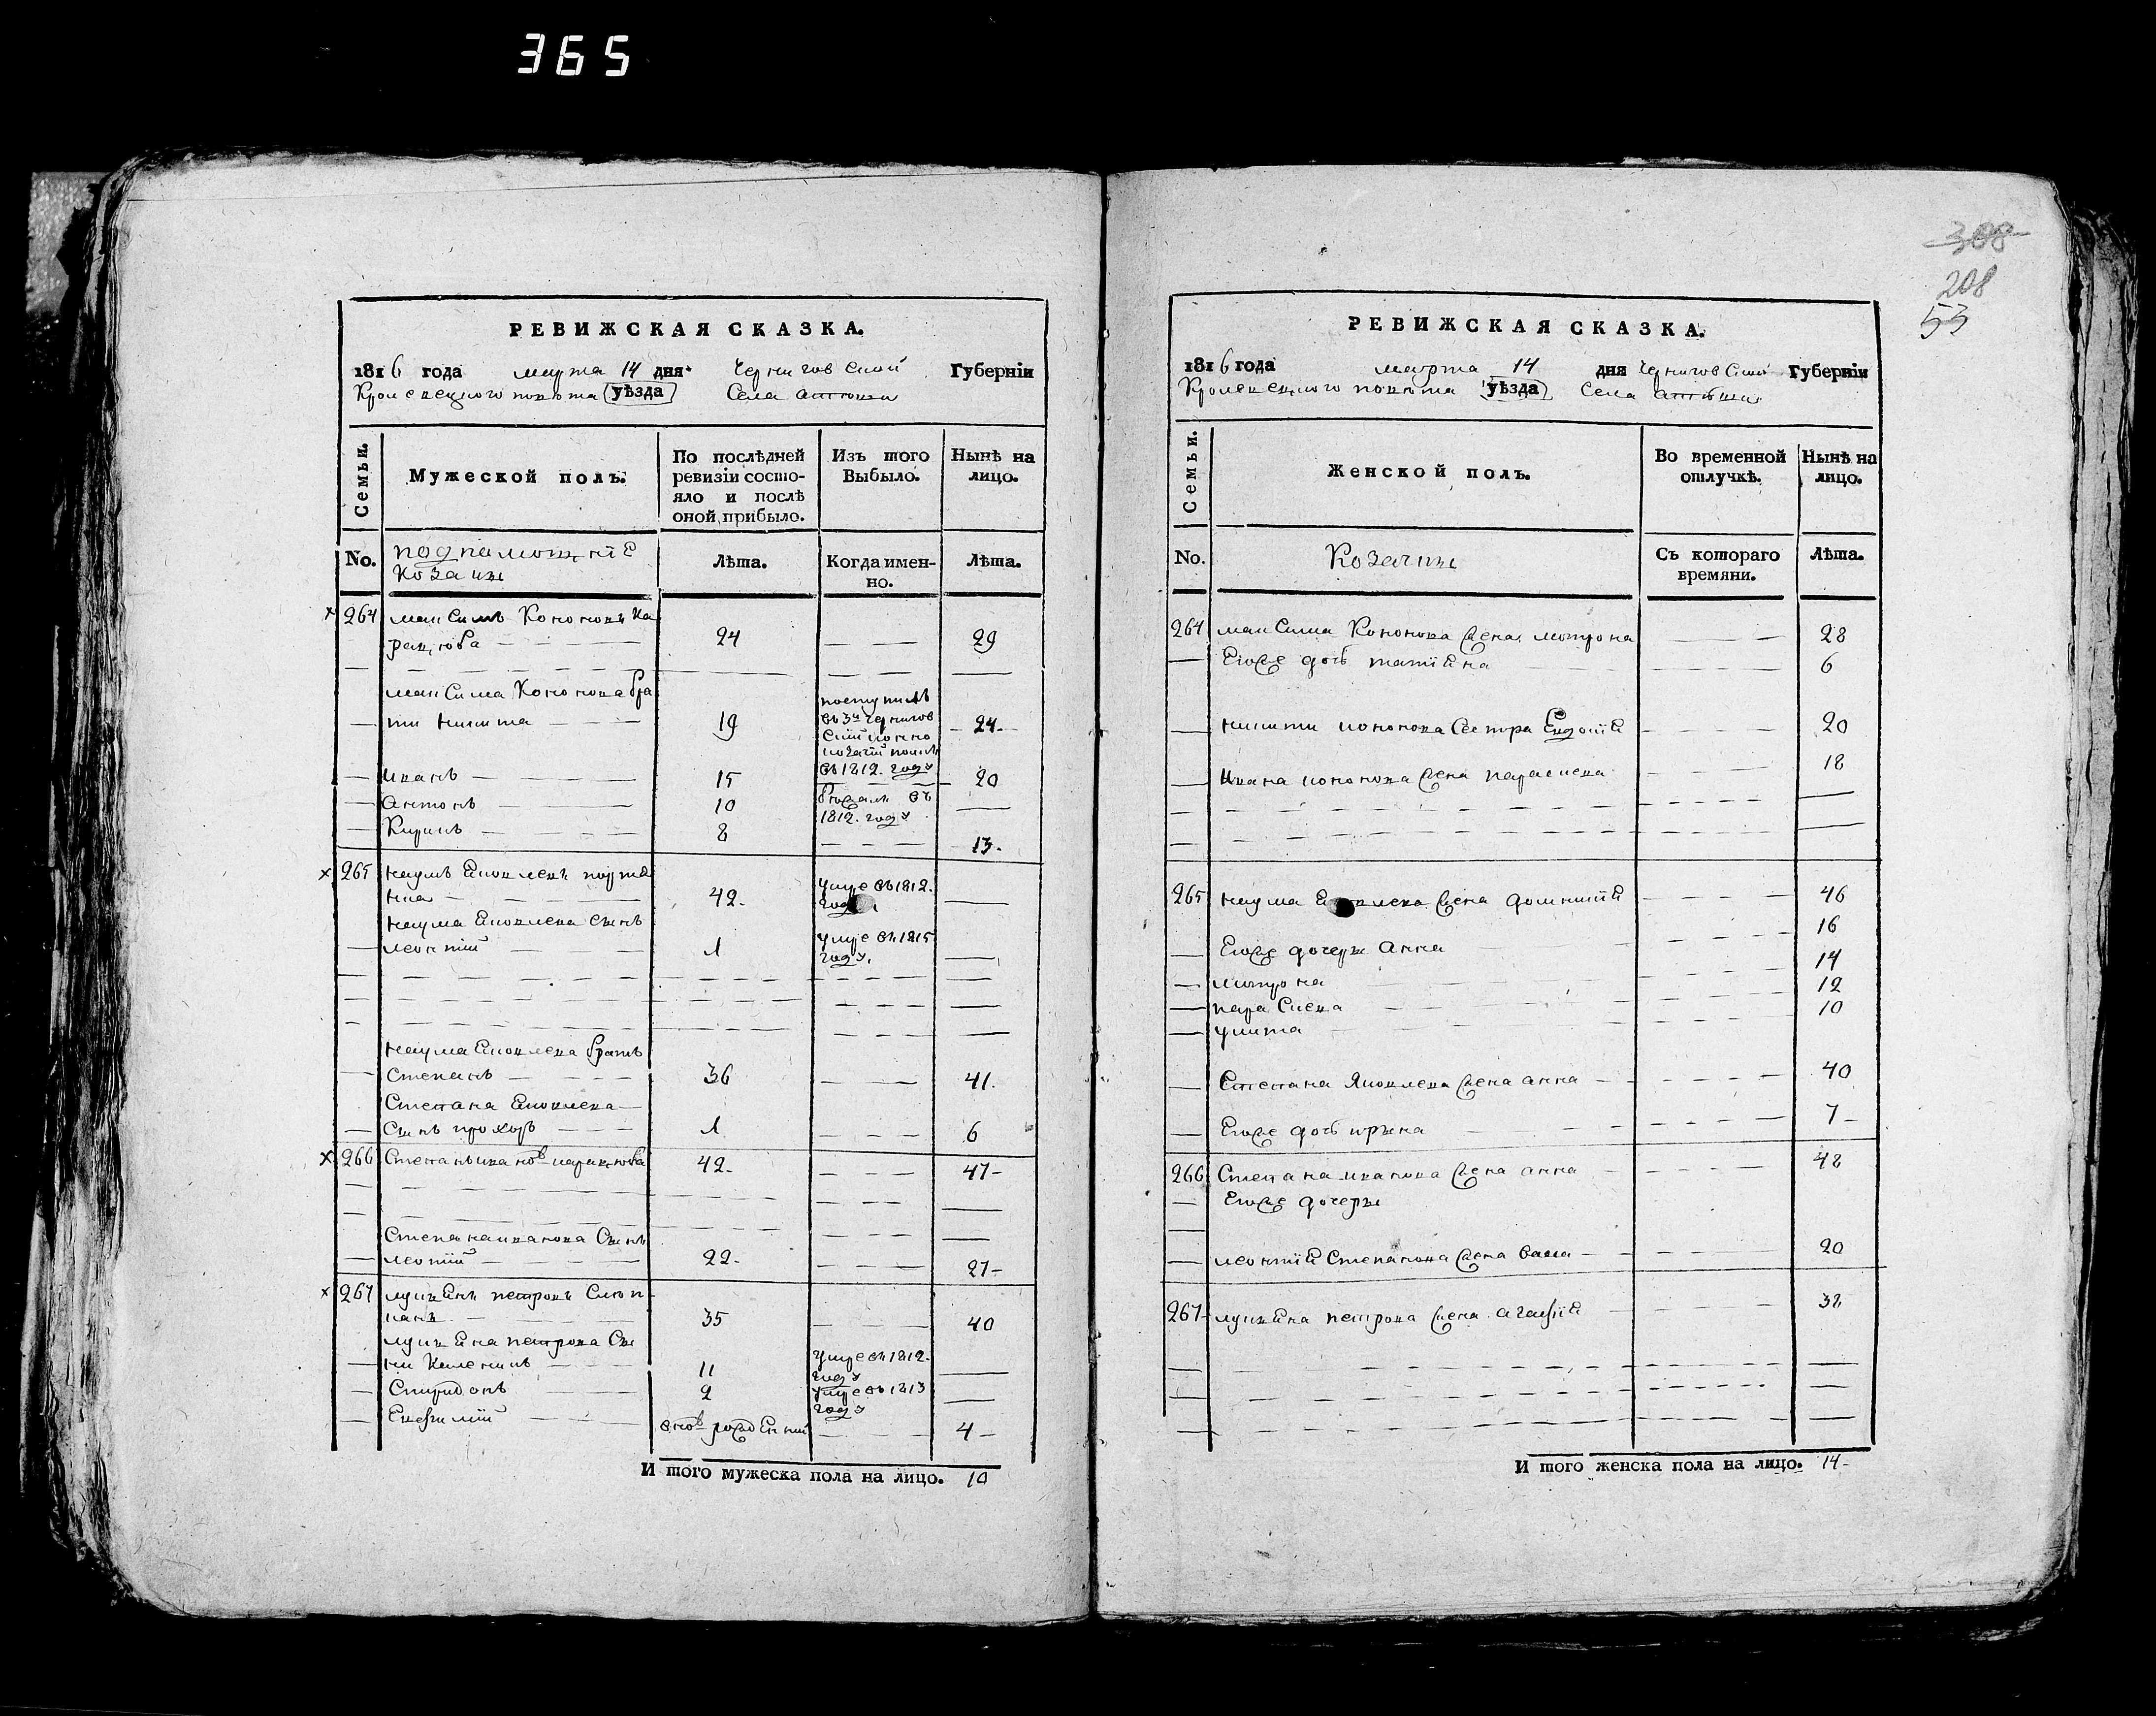 365
308
208
53
РЕВИЖСКАЯ СКАЗКА.
1816 года марта 14 дня Чернигов ской Губерніи
Кролевецкого повѣта уѣзда Села
Семьи.
Мужеской полъ.
По послѣдней ревизіи состо-
яло и послѣ
оной прибыло.
Изъ того
Выбыло.
Нынѣ на
лицо.
No.
подпамощніе
козаки
Лѣта.
Когда имен-
но.
Лѣта.
264 максимъ Кононовъ ка
рацюба 24 29
максима Кононова бра
ти никита 19 24
поступилъ
въ 3й чернигов
ский конно
козачій полкъ
въ 1812. году
иванъ 15 20
антонъ 10
1812. году
Кирилъ 8 13.
265 наумъ Ековлевъ
42. умре въ 1812.
году
наума Ековлева сынъ
леонтій 1 умре въ 1815
году,
наума Ековлева братъ
Степанъ 36 41.
Степана Ековлева
Сынъ прохоръ 1 6
266 Степанъ ивановъ карацюба 42. 47
Степана иванова Сынъ
леонтій 22. 27
267 лукьенъ петровъ
35 40
лукьена петрова Сы
ны 11 умре въ 1812.
году
Спиридонъ 2 умре въ 1813
году
Евфилій внов рожденній 4
И того мужеска пола на лицо. 10
РЕВИЖСКАЯ СКАЗКА.
1816 года марта 14 дня Чернигов ской Губерніи
Кролевецкого повѣта уѣзда Села
Семьи.
Женской полъ.
Во временной
отлучкѣ.
Нынѣ на
лицо.
No.
Козачки
Съ котораго
времяни.
Лѣта.
264 максима Кононова жена мотрона 28
Егоже дочь татіена 6
никити кононова сестра Евдокіе 20
ивана кононова жена параскева 18
265 наума Ековлева жена домникіе 46
Егоже дочеры анна 16
мотрона 14
параскева 12
улита 10
Степана Яковлева жена анна 40
Егоже дочь ирына 7
266 Степана иванова жена анна 48
Егоже дочеры
леонтіе Степанова жена васса 20
267 лукьена петрова жена агафіе 38
И того женска пола на лицо. 14